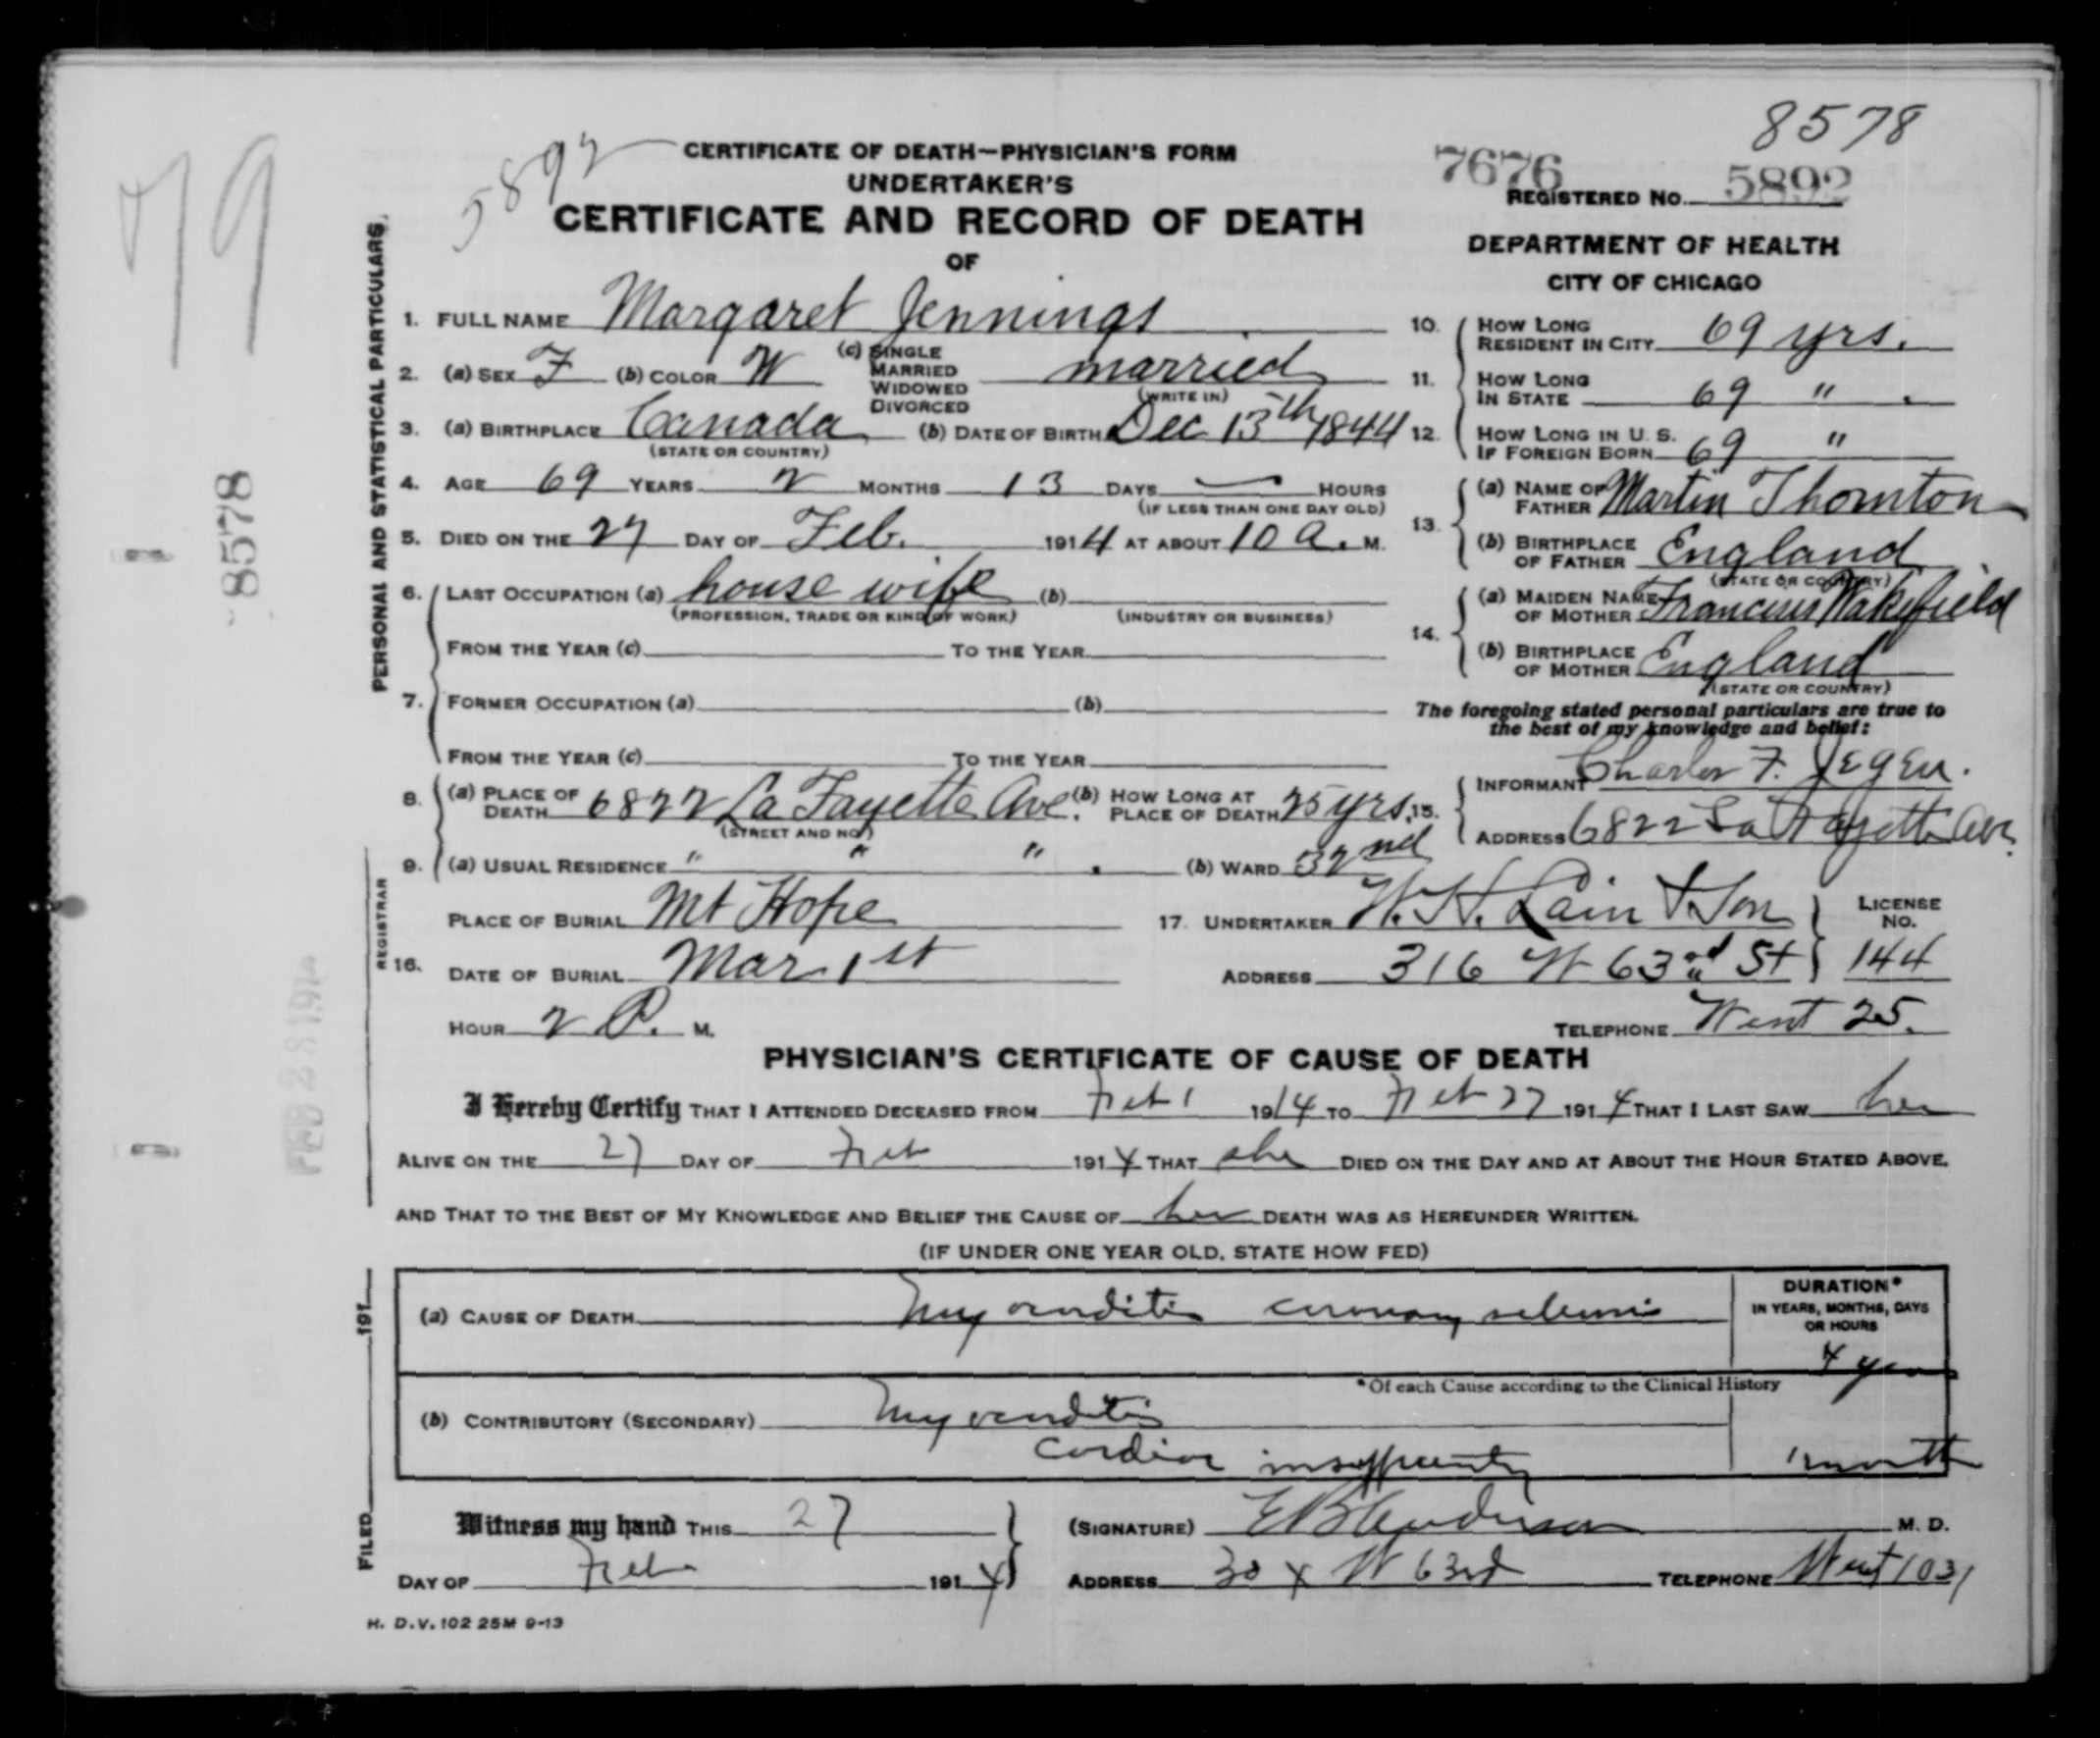 79
8578
FEB 28 1914
8578
5892
CERTIFICATE OF DEATH—PHYSICIAN'S FORM
UNDERTAKER'S
CERTIFICATE AND RECORD OF DEATH
OF
7676
REGISTERED NO. 5892
DEPARTMENT OF HEALTH
CITY OF CHICAGO
PERSONAL AND STATISTICAL PARTICULARS.
1. FULL NAME Margaret Jennings
2. (a) SEX F (b) COLOR W (c) SINGLE MARRIED WIDOWED DIVORCED married
(WRITE IN)
3. (a) BIRTHPLACE Canada (b) DATE OF BIRTH Dec 13th 1844
(STATE OR COUNTRY)
4. AGE 69 YEARS 2 MONTHS 13 DAYS — HOURS
(IF LESS THAN ONE DAY OLD)
5. DIED ON THE 27 DAY OF Feb. 1914 AT ABOUT 10 A. M.
6. LAST OCCUPATION (a) house wife (b)
(PROFESSION, TRADE OR KIND OF WORK) (INDUSTRY OR BUSINESS)
FROM THE YEAR (c) TO THE YEAR
7. FORMER OCCUPATION (a) (b)
FROM THE YEAR (c) TO THE YEAR
8. (a) PLACE OF DEATH 6822 La Fayette Ave. (b) HOW LONG AT PLACE OF DEATH 25 yrs.
(STREET AND NO.)
9. (a) USUAL RESIDENCE " " " . (b) WARD 32nd
10. HOW LONG RESIDENT IN CITY 69 yrs.
11. HOW LONG IN STATE 69 " .
12. HOW LONG IN U. S. IF FOREIGN BORN 69 "
13. (a) NAME OF FATHER Martin Thornton
(b) BIRTHPLACE OF FATHER England
(STATE OR COUNTRY)
14. (a) MAIDEN NAME OF MOTHER Wakefield
(b) BIRTHPLACE OF MOTHER England
(STATE OR COUNTRY)
The foregoing stated personal particulars are true to
the best of my knowledge and belief:
15. INFORMANT Charles F. Jegen.
ADDRESS 6822 La Fayette Ave.
REGISTRAR
16. PLACE OF BURIAL Mt Hope
DATE OF BURIAL Mar 1st
HOUR 2 P. M.
17. UNDERTAKER W. H. Lain & Son
LICENSE NO. 144
ADDRESS 316 W 63rd St
TELEPHONE Went 25.
PHYSICIAN'S CERTIFICATE OF CAUSE OF DEATH
I Hereby Certify THAT I ATTENDED DECEASED FROM Feb 1 1914 TO Feb 27 1914 THAT I LAST SAW her
ALIVE ON THE 27 DAY OF Feb 1914 THAT she DIED ON THE DAY AND AT ABOUT THE HOUR STATED ABOVE,
AND THAT TO THE BEST OF MY KNOWLEDGE AND BELIEF THE CAUSE OF her DEATH WAS AS HEREUNDER WRITTEN.
(IF UNDER ONE YEAR OLD, STATE HOW FED)
(a) CAUSE OF DEATH Myocarditis coronary
DURATION*
IN YEARS, MONTHS, DAYS
OR HOURS
4 years
*Of each Cause according to the Clinical History
(b) CONTRIBUTORY (SECONDARY) Myocarditis
Cardiac insufficiency 1 month
FILED 191
Witness my hand THIS 27
DAY OF Feb 1914
(SIGNATURE) E B Anderson M. D.
ADDRESS W 63rd TELEPHONE Went 1031
H. D. V. 102 25M 9-13